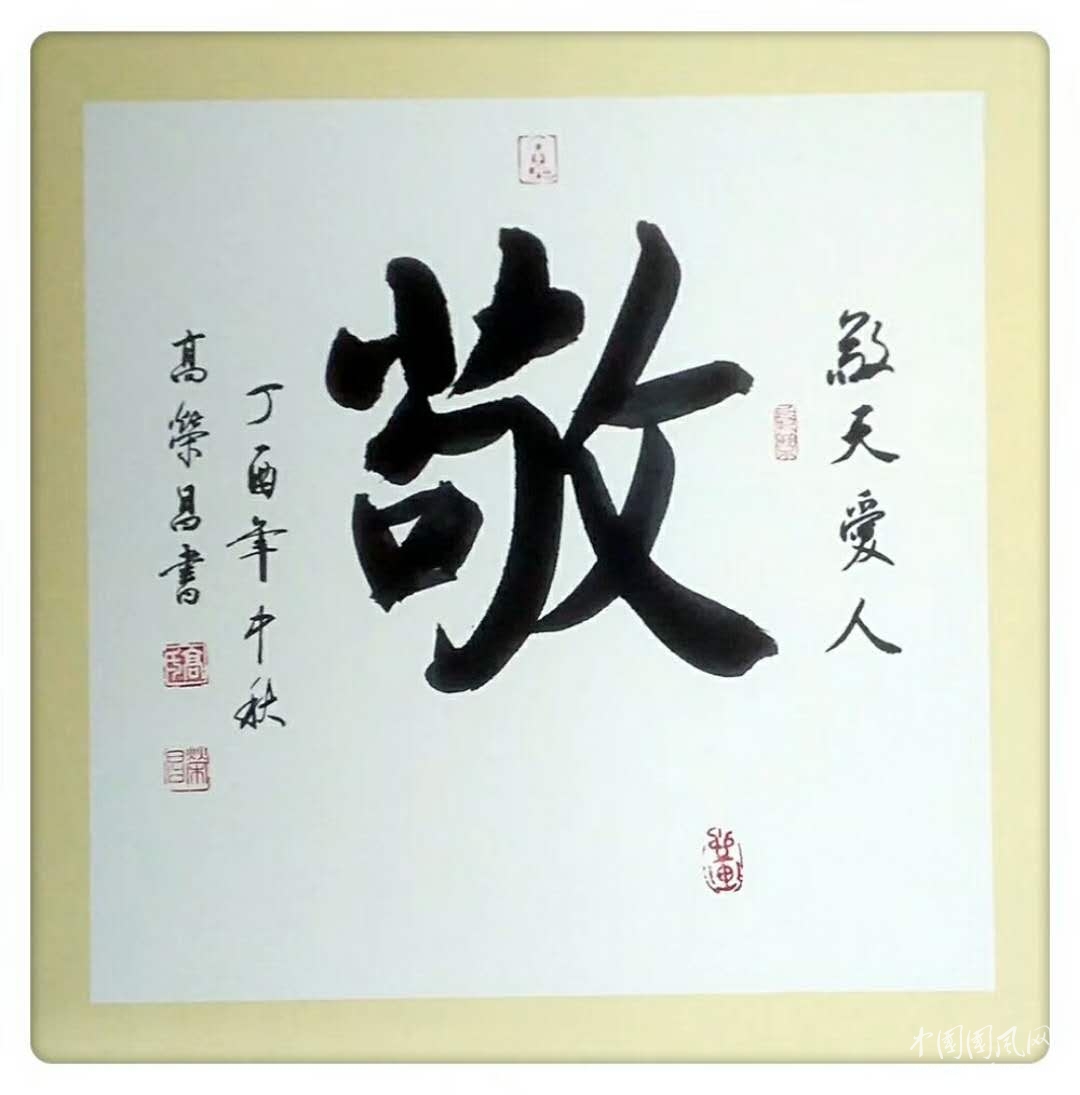 敬天愛人
敬
丁酉年中秋
高榮昌書
高氏
榮昌
中国国风网